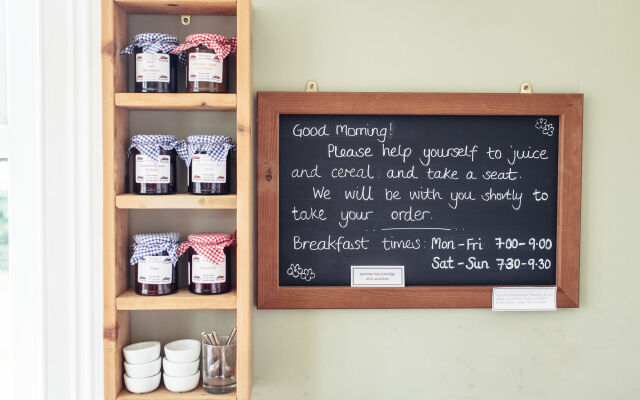 Good Morning!
Please help yourself to juice
and cereal and take a seat.
We will be with you shortly to
take your order.
Breakfast times: Mon-Fri 7:00-9:00
Sat-Sun 7:30-9:30
yummy hot porridge
also available